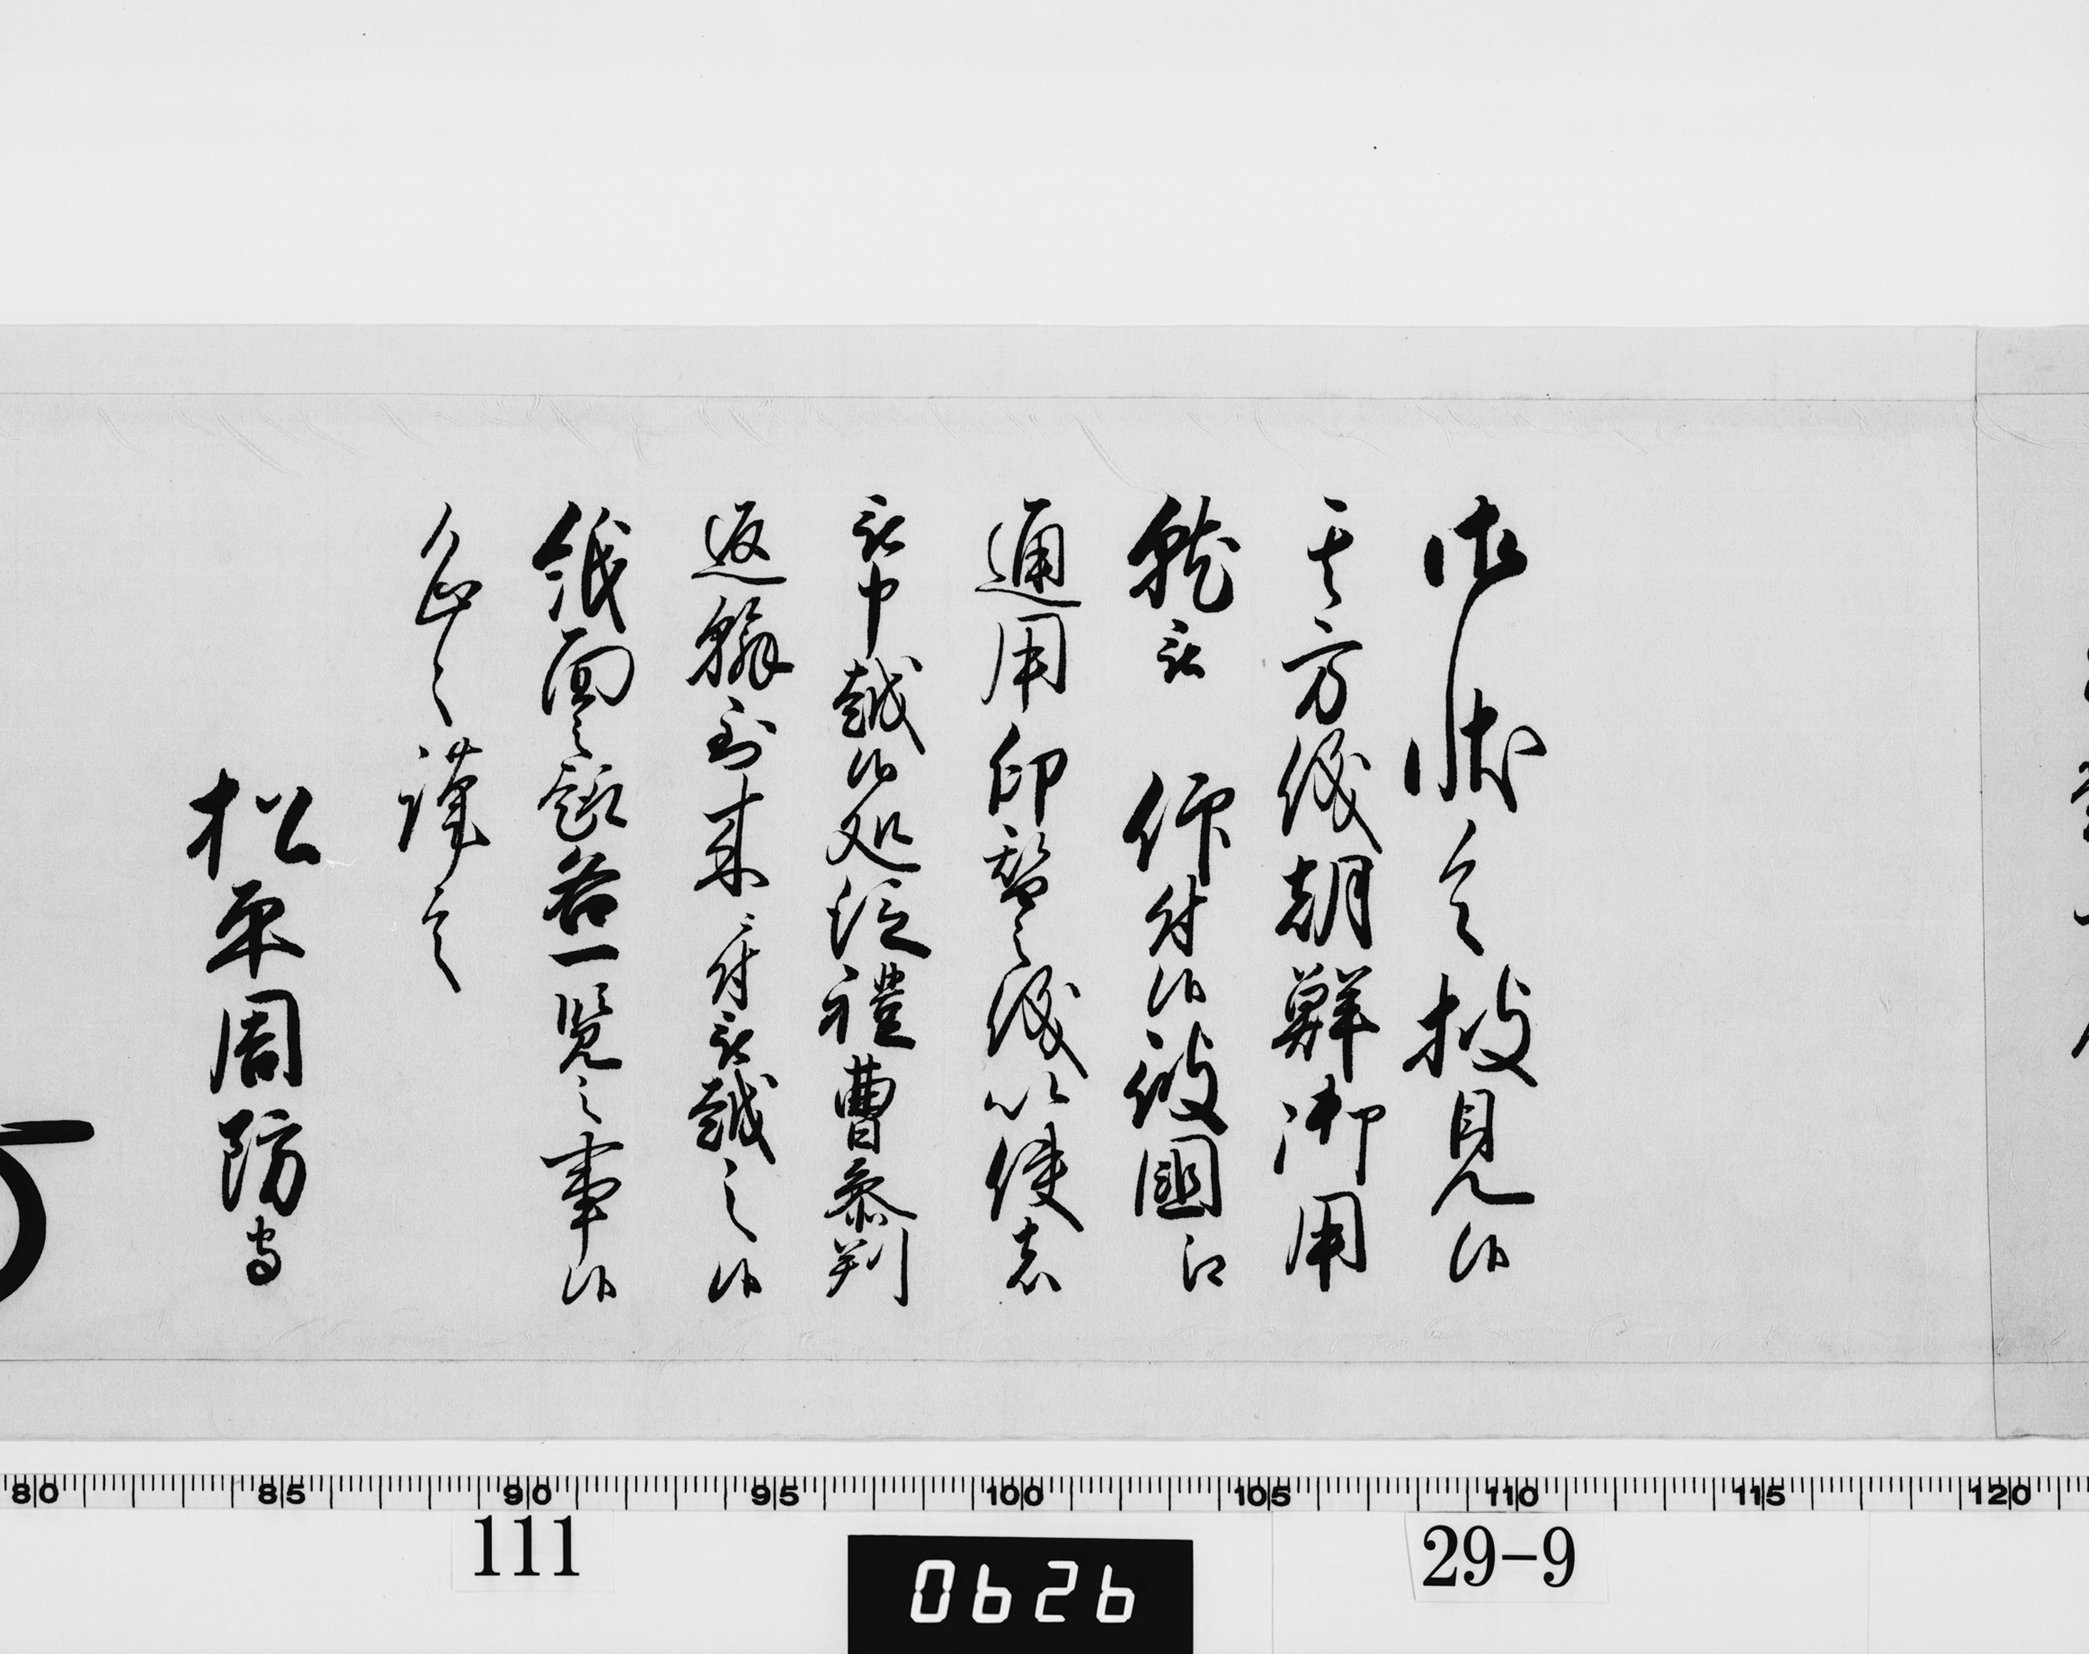 御状令披見候
其方儀朝鮮御用
就被 仰付候彼国江
通用印鑑之儀以使者
被申越候処従禮曹参判
返翰到来ニ付被越之候
紙面之趣各一覧之事候
恐々謹言
松平周防守
80 85 90 95 100 105 110 115 120
111
0626
29-9